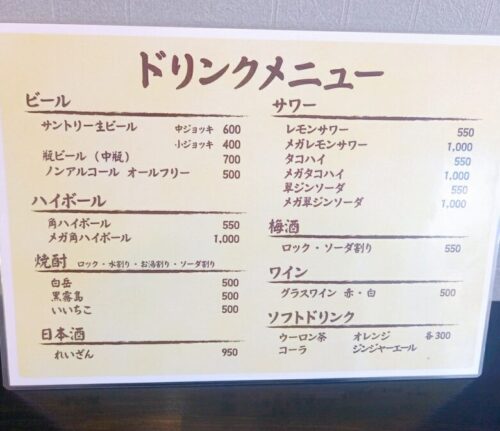 ドリンクメニュー
ビール
サントリー生ビール 中ジョッキ 600
小ジョッキ 400
瓶ビール（中瓶） 700
ノンアルコール オールフリー 500
ハイボール
角ハイボール 550
メガ角ハイボール 1,000
焼酎 ロック・水割り・お湯割り・ソーダ割り
白岳 500
黒霧島 500
いいちこ 500
日本酒
れいざん 950
サワー
レモンサワー 550
メガレモンサワー 1,000
タコハイ 550
メガタコハイ 1,000
翠ジンソーダ 550
メガ翠ジンソーダ 1,000
梅酒
ロック・ソーダ割り 550
ワイン
グラスワイン 赤・白 500
ソフトドリンク
ウーロン茶 オレンジ 各300
コーラ ジンジャーエール